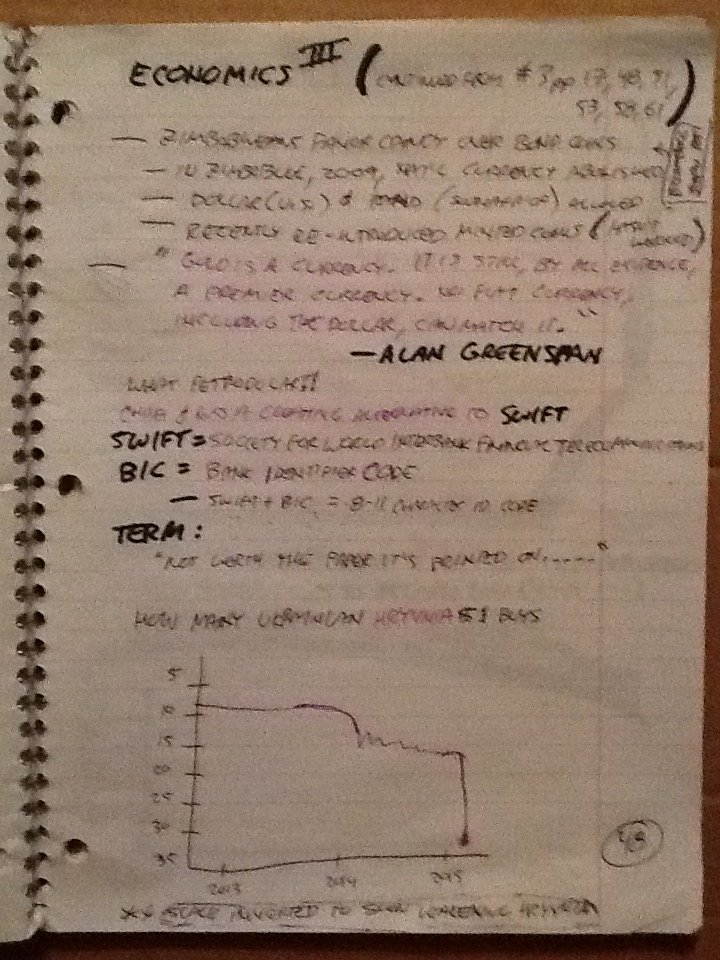 ECONOMICS III (CONTINUED FROM #3 pp 17, 48, 51,
53, 58, 61)
— ZIMBABWEANS FAVOR CANDY OVER BOND COINS
— IN ZIMBABWE, 2009, CURRENCY ABOLISHED
— DOLLAR (U.S.) & (SOUTH AFRICA) ALLOWED
— RECENTLY RE-INTRODUCED MINTED COINS (
— "GOLD IS A CURRENCY. IT IS STILL, BY ALL EVIDENCE,
A PREMIER CURRENCY. NO FIAT CURRENCY,
INCLUDING THE DOLLAR, CAN MATCH IT."
—ALAN GREENSPAN
WHAT PETRODOLLAR?!
CHINA & RUSSIA CREATING ALTERNATIVE TO SWIFT
SWIFT = SOCIETY FOR WORLD INTERBANK FINANCIAL TELECOMMUNICATIONS
BIC = BANK IDENTIFIER CODE
— SWIFT + BIC = 8-11 CHARACTER ID CODE
TERM:
"NOT WORTH THE PAPER IT'S PRINTED ON....."
HOW MANY UKRAINIAN HRYVNIA $1 BUYS
5
10
15
20
25
30
35
2013
2014
2015
SCALE INVERTED TO SHOW WEAKENING HRYVNIA